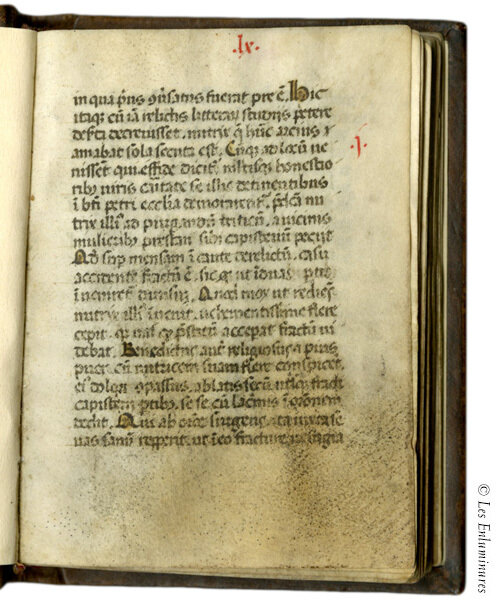 .lx.
in qua pri9 9ūsatus fuerat pre ē. Hic
itaq̧ cū iā relictis litteraȝ studiis petere
deſ̄ta decreuisset. nutrix q̄ hūc arcius
amabat sola secuta est. Cūq̧ ad locū ue
.j.
nissēt qui effide dicit̄. multisq̧ honestio
rib9 uiris caritate se illic detinentibus
ī bt̄i petri ecclīa demorarent̄. p̄fata nu
trix illi9 ad purgandū triticū. a uicinis
mulierib9 prestari sibi capisteriū peciit
ī caute derelictū. casu
accidente fractū ē. sic q̧ ut ī duas ptes
īueniret̄ diuisū. mox ut rediēs
nutrix illi9 īuenit. uehementissime flere
cepit. accepat fractū ui
debat. Benedictus aut̄ religiosus 7 pius
puer cū nutricem suam flere conspiceret.
ei9 dolori 9passus. ablatis secū utriusq̧ fracti
capisterii ptib9. se se cū lacrimis ī oronem
dedit. Qui ab orōe surgens. ita iuxta se
uas sanū repperit. ut ī eo fracture uestigia
© Les Enluminures